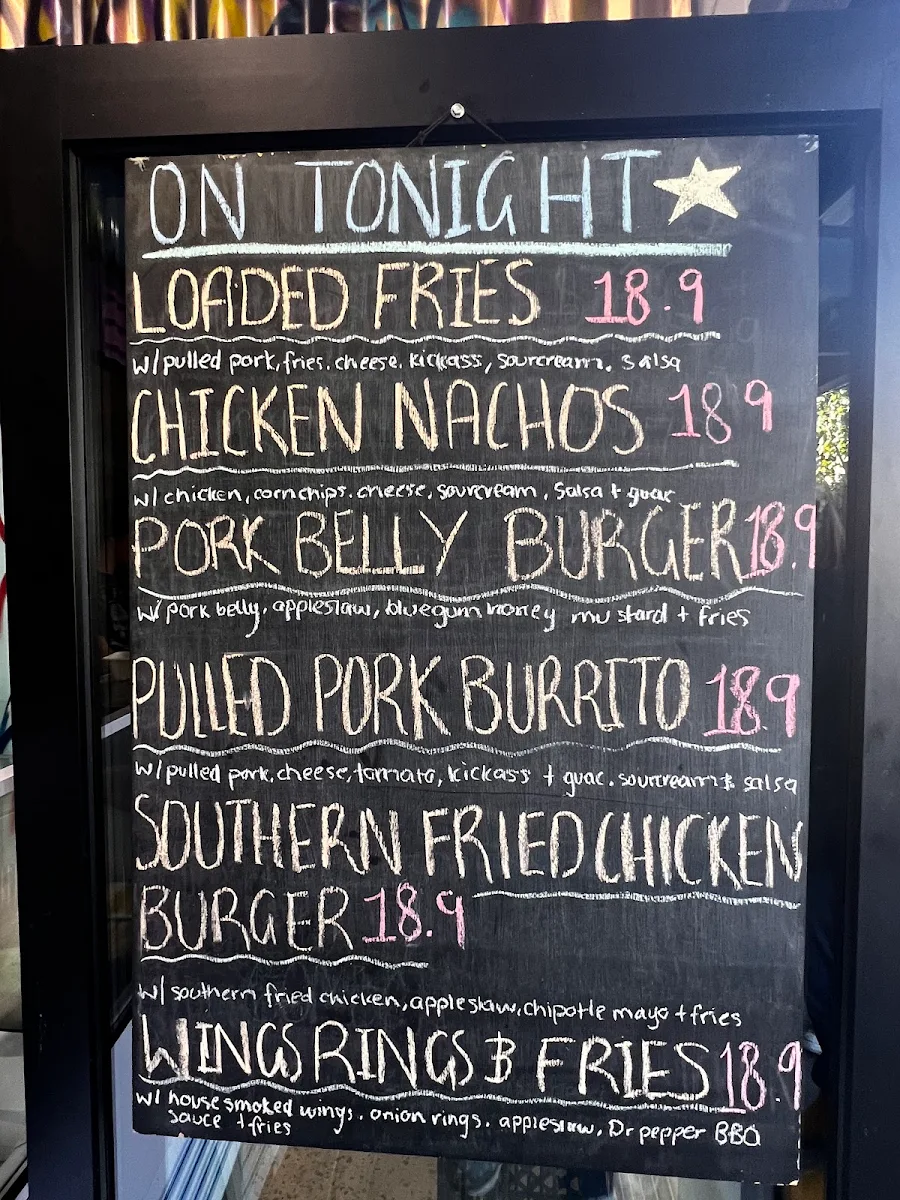 ON TONIGHT
LOADED FRIES 18.9
w/ pulled pork, fries. cheese. kickass, sourcream. salsa
CHICKEN NACHOS 18.9
w/ chicken, cornchips. cheese, sourcream, salsa + guac
PORK BELLY BURGER 18.9
w/ pork belly, appleslaw, bluegum honey mustard + fries
PULLED PORK BURRITO 18.9
w/ pulled pork, cheese, tomato, kickass + guac. sourcream & salsa
SOUTHERN FRIED CHICKEN
BURGER 18.9
w/ southern fried chicken, appleslaw, chipotle mayo + fries
WINGS RINGS & FRIES 18.9
w/ house smoked wings. onion rings. appleslaw. Dr pepper BBQ
sauce + fries